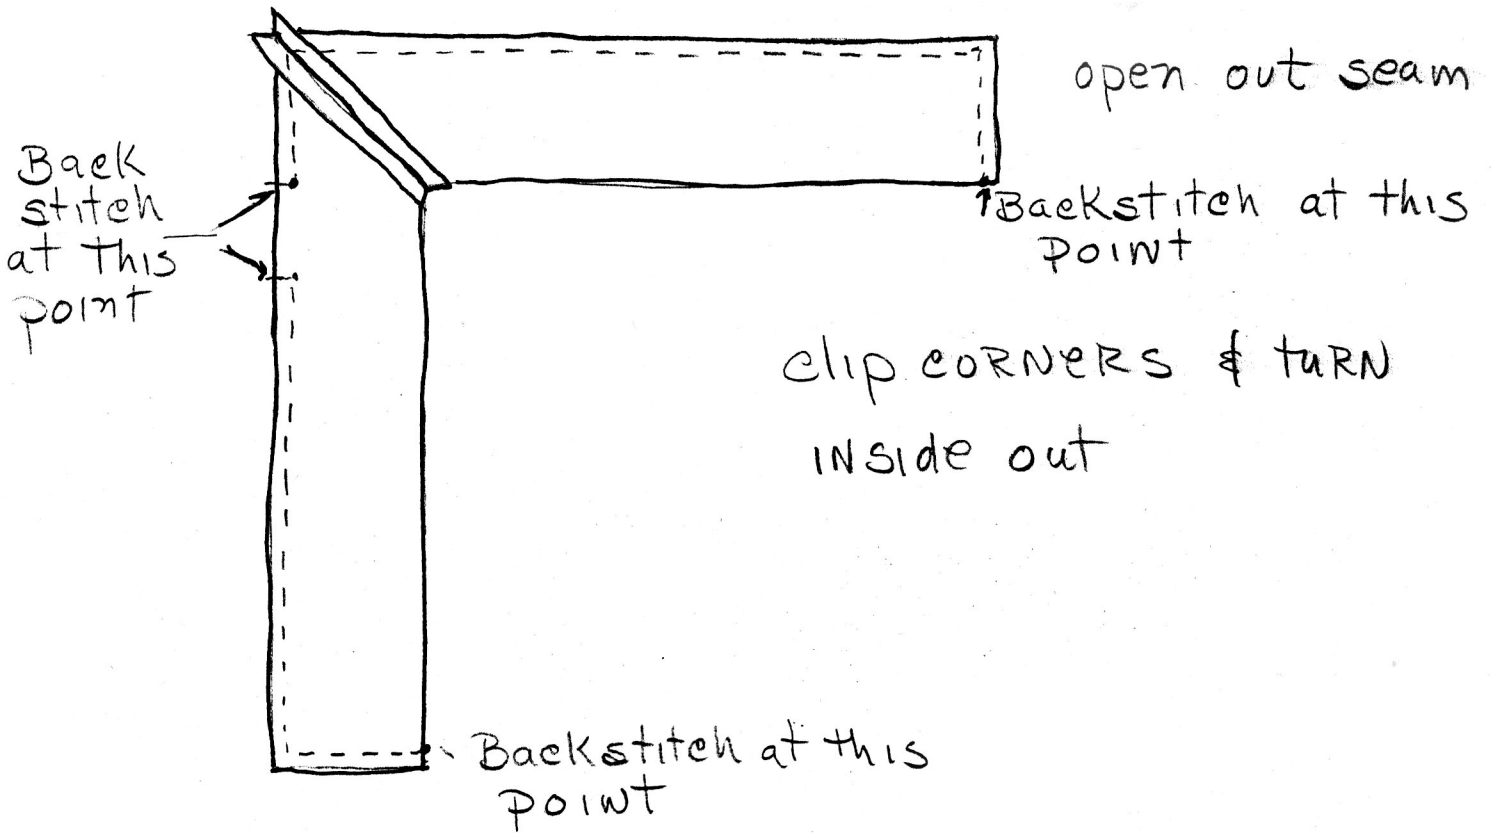 open out seam
Back
stitch
at this
point
Backstitch at this
point
clip corners & turn
inside out
Backstitch at this
point